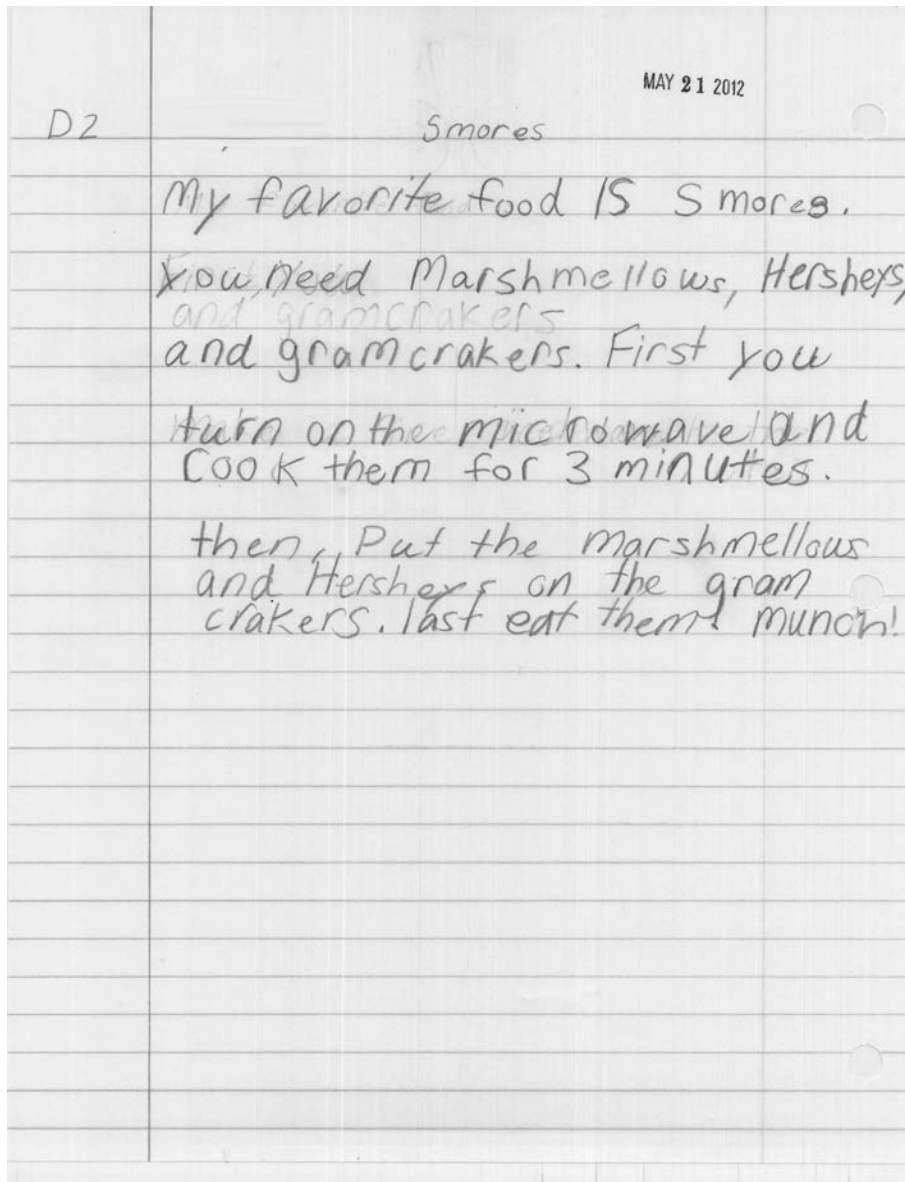 MAY 21 2012
D2 Smores
My favorite food IS Smores.
You need Marshmellows, Hersheys,
and gramcrakers
and gramcrakers. First you
turn on the microwave and
Cook them for 3 minuttes.
then, Put the marshmellows
and Hersheys on the gram
crakers. last eat them! munch!